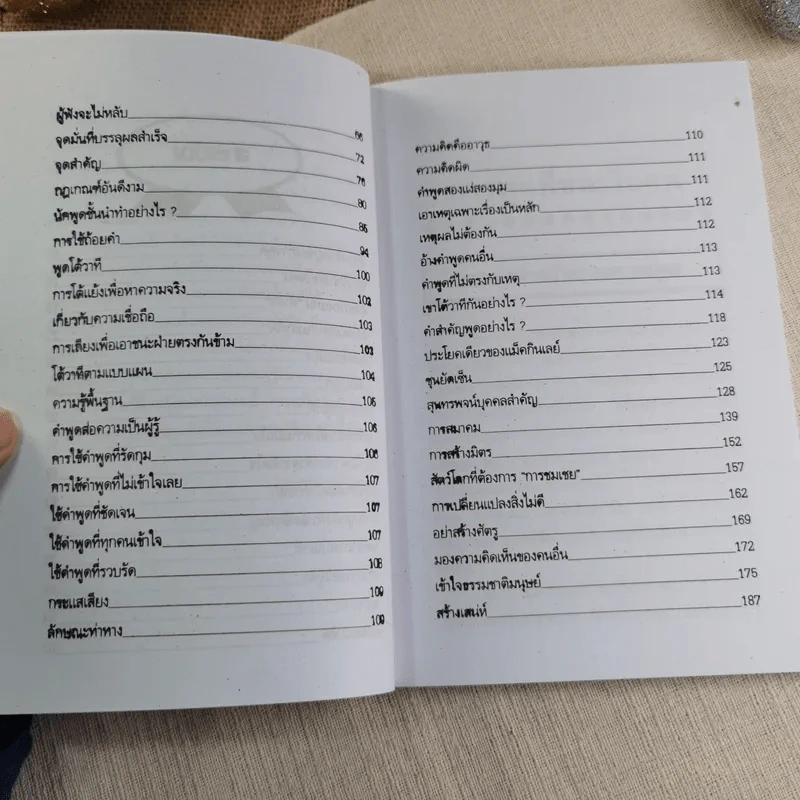 ผู้ฟังจะไม่หลับ 66
จุดมั่นที่บรรลุผลสำเร็จ 72
จุดสำคัญ 76
กฎเกณฑ์อันดีงาม 80
นักพูดชั้นนำทำอย่างไร ? 85
การใช้ถ้อยคำ 94
พูดโต้วาที 100
การโต้แย้งเพื่อหาความจริง 102
เกี่ยวกับความเชื่อถือ 103
การเลี่ยงเพื่อเอาชนะฝ่ายตรงกันข้าม 103
โต้วาทีตามแบบแผน 104
ความรู้พื้นฐาน 105
คำพูดส่อความเป็นผู้รู้ 106
การใช้คำพูดที่รัดกุม 106
การใช้คำพูดที่ไม่เข้าใจเลย 107
ใช้คำพูดที่ชัดเจน 107
ใช้คำพูดที่ทุกคนเข้าใจ 107
ใช้คำพูดที่รวบรัด 108
กระแสเสียง 109
ลักษณะท่าทาง 109
ความคิดคืออาวุธ 110
ความคิดผิด 111
คำพูดสองแง่สองมุม 111
เอาเหตุเฉพาะเรื่องเป็นหลัก 112
เหตุผลไม่ต้องกัน 112
อ้างคำพูดคนอื่น 113
คำพูดที่ไม่ตรงกับเหตุ 113
เขาโต้วาทีกันอย่างไร ? 114
คำสำคัญพูดอย่างไร ? 118
ประโยคเดียวของแม็คกินเลย์ 123
ซุนยัดเซ็น 125
สุนทรพจน์บุคคลสำคัญ 128
การสมาคม 139
การสร้างมิตร 152
สัตว์โลกที่ต้องการ "การชมเชย" 157
การเปลี่ยนแปลงสิ่งไม่ดี 162
อย่าสร้างศัตรู 169
มองความคิดเห็นของคนอื่น 172
เข้าใจธรรมชาติมนุษย์ 175
สร้างเสน่ห์ 187